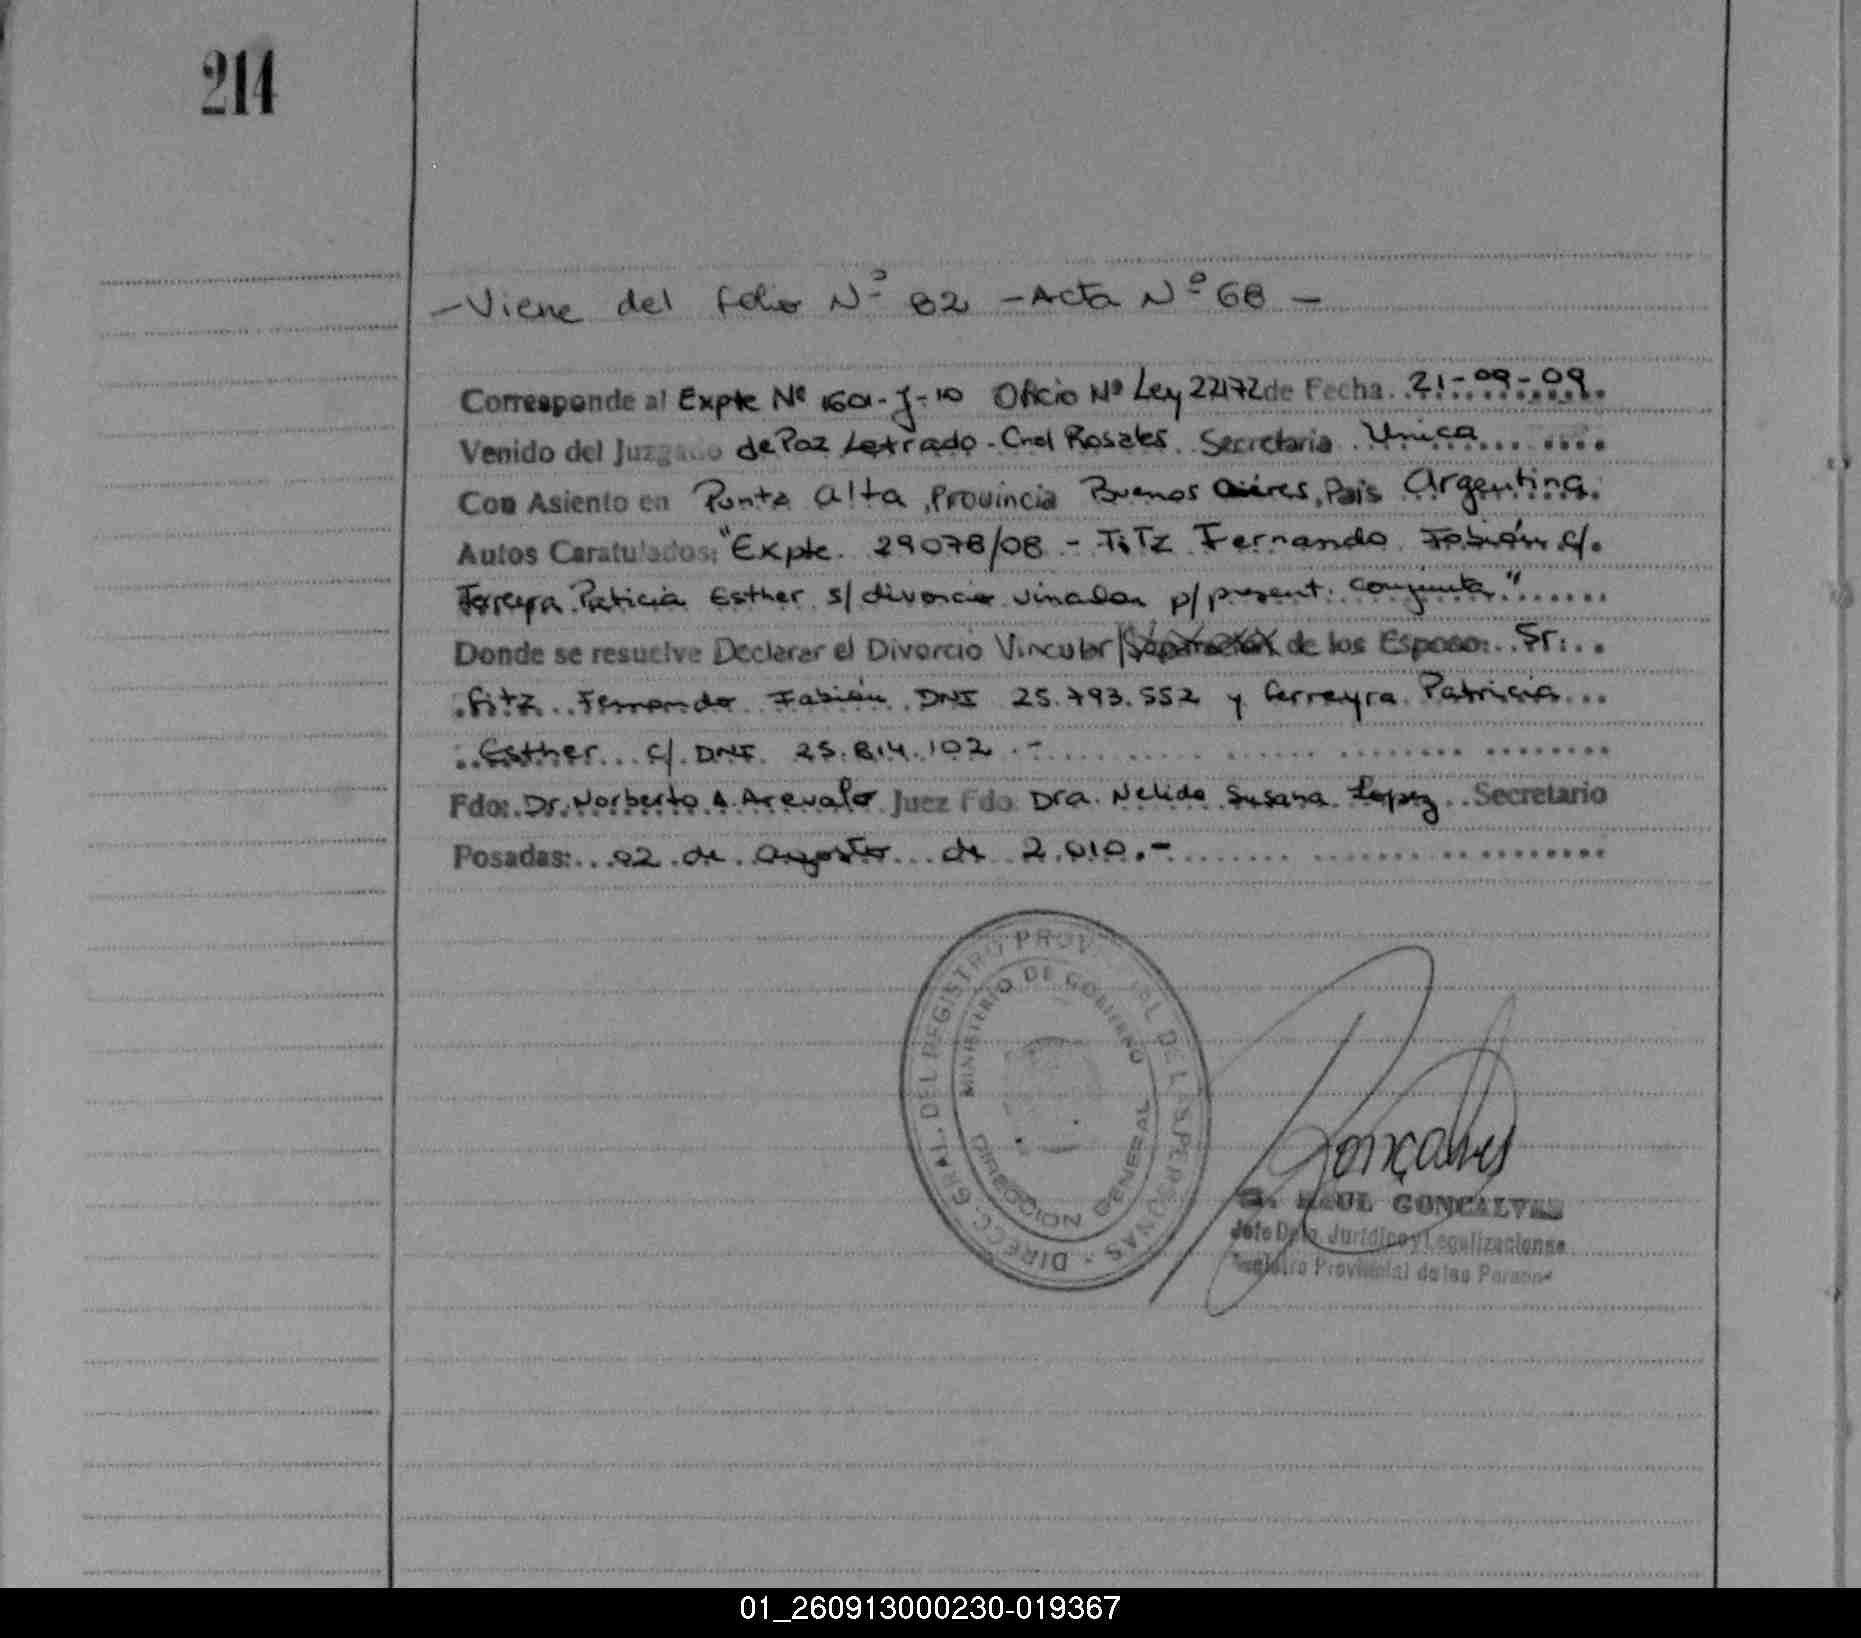 214
- Viene del folio Nº 82 - Acta Nº 68 -
Corresponde al Expte Nº 1601-J-10 Oficio Nº Ley 22172 de Fecha 21-09-09.
Venido del Juzgado de Paz Letrado - Cnel Rosales. Secretaria Unica
Con Asiento en Punta Alta, Provincia Buenos Aires, Pais Argentina.
Autos Caratulados: "Expte. 29078/08 - Titz Fernando Fabián c/.
Ferreyra Patricia Esther s/ divorcio vincular p/ present. conjunta"
Donde se resuelve Declarar el Divorcio Vincular/Separación de los Esposo: Sr:
Titz Fernando Fabián DNI 25.793.552 y Ferreyra Patricia
Esther c/ DNI 25.814.102.-
Fdo: Dr. Norberto A. Arevalo Juez Fdo Dra. Nelida Susana Lopez Secretario
Posadas: 02 de agosto de 2.010.-
DIRECC. GRAL. DEL REGISTRO PROVINCIAL DE LAS PERSONAS
MINISTERIO DE GOBIERNO
DIRECCION GENERAL
Gonçalves
RAUL GONCALVES
Jefe Dpto. Jurídico y Legalizaciones
Registro Provincial de las Personas
01_260913000230-019367